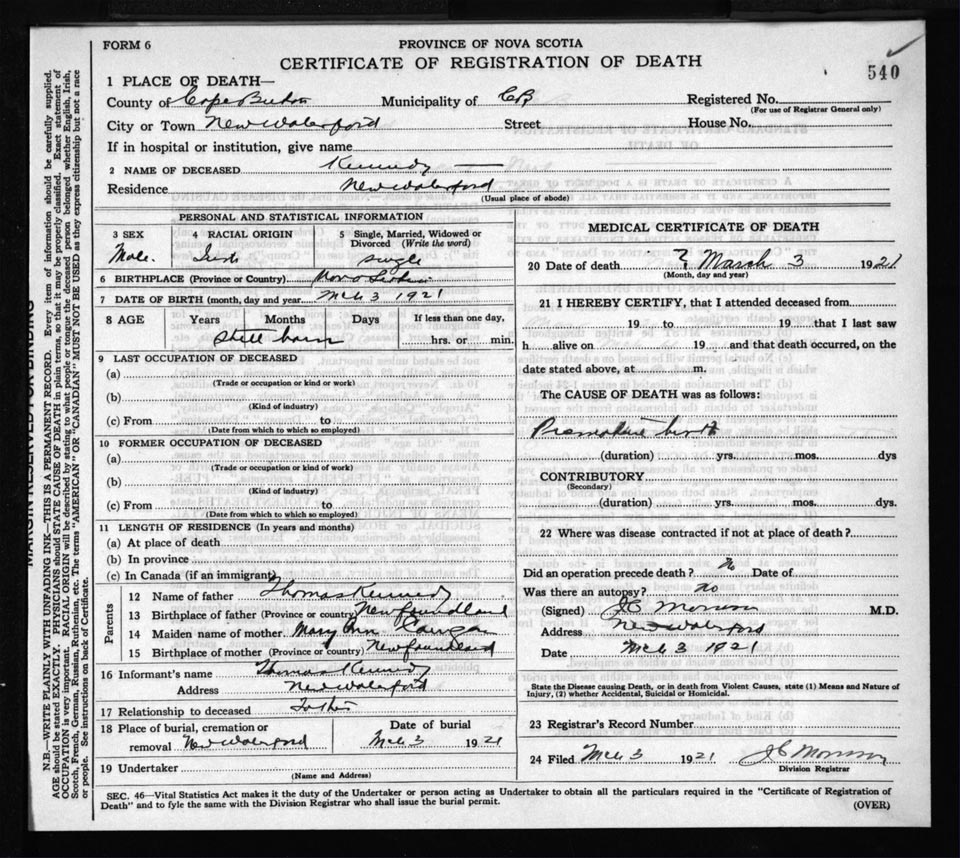 FORM 6
PROVINCE OF NOVA SCOTIA
CERTIFICATE OF REGISTRATION OF DEATH
540
1 PLACE OF DEATH—
County of Cape Breton Municipality of CB Registered No.
(For use of Registrar General only)
City or Town New Waterford Street House No.
If in hospital or institution, give name
2 NAME OF DECEASED Kennedy —
Residence New Waterford
(Usual place of abode)
PERSONAL AND STATISTICAL INFORMATION
3 SEX 4 RACIAL ORIGIN 5 Single, Married, Widowed or Divorced (Write the word)
Male. Irish single
6 BIRTHPLACE (Province or Country) Nova Scotia
7 DATE OF BIRTH (month, day and year) Mch 3 1921
8 AGE Years Months Days If less than one day,
Still born hrs. or min.
9 LAST OCCUPATION OF DECEASED
(a)
(Trade or occupation or kind or work)
(b)
(Kind of industry)
(c) From to
(Date from which to which so employed)
10 FORMER OCCUPATION OF DECEASED
(a)
(Trade or occupation or kind of work)
(b)
(Kind of industry)
(c) From to
(Date from which to which so employed)
11 LENGTH OF RESIDENCE (In years and months)
(a) At place of death
(b) In province
(c) In Canada (if an immigrant)
Parents
12 Name of father Thomas Kennedy
13 Birthplace of father (Province or country) Newfoundland
14 Maiden name of mother Mary Ann
15 Birthplace of mother (Province or country) Newfoundland
16 Informant's name Thomas Kennedy
Address New Waterford
17 Relationship to deceased Father
18 Place of burial, cremation or Date of burial
removal New Waterford Mch 3 1921
19 Undertaker
(Name and Address)
MEDICAL CERTIFICATE OF DEATH
20 Date of death March 3 1921
(Month, day and year)
21 I HEREBY CERTIFY, that I attended deceased from
19 to 19 that I last saw
h alive on 19 and that death occurred, on the
date stated above, at m.
The CAUSE OF DEATH was as follows:
Premature birth
(duration) yrs. mos. dys
CONTRIBUTORY
(Secondary)
(duration) yrs. mos. dys.
22 Where was disease contracted if not at place of death?
Did an operation precede death? No Date of
Was there an autopsy? No
(Signed) JC Morrison M.D.
Address New Waterford
Date Mch 3 1921
State the Disease causing Death, or in death from Violent Causes, state (1) Means and Nature of
Injury, (2) whether Accidental, Suicidal or Homicidal.
23 Registrar's Record Number
24 Filed Mch 3 1921 JC Morrison
Division Registrar
SEC. 46—Vital Statistics Act makes it the duty of the Undertaker or person acting as Undertaker to obtain all the particulars required in the "Certificate of Registration of
Death" and to fyle the same with the Division Registrar who shall issue the burial permit.
(OVER)
MARGIN RESERVED FOR BINDING
N.B.—WRITE PLAINLY WITH UNFADING INK—THIS IS A PERMANENT RECORD. Every item of information should be carefully supplied.
AGE should be stated EXACTLY. PHYSICIANS should STATE CAUSE OF DEATH in plain terms, so that it may be properly classified. Exact statement of
OCCUPATION is very important. RACIAL ORIGIN will be described by stating to what people or tongue the deceased person belonged whether English, Irish,
Scotch, French, German, Russian, Ruthenian, etc. The terms "AMERICAN" OR "CANADIAN" MUST NOT BE USED as they express citizenship but not a race
or people. See instructions on back of Certificate.